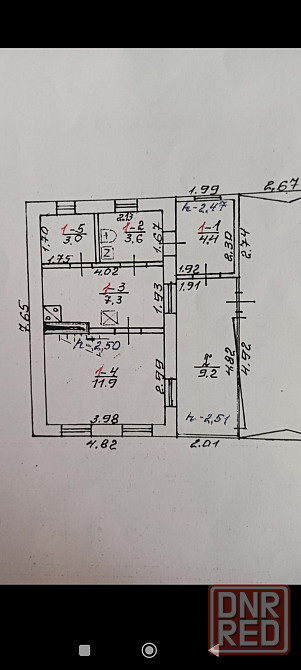 1.99
2.67
h-2,47
2.13
1-5
3.0
1-2
3.6
1.67
1-1
4.4
1.70
2.30
2.74
1.75
4.02
1.92
1.91
1-3
7.3
1.93
7.65
h-2,50
1-4
11.9
2.99
2
9.2
4.82
4.92
3.98
h-2,51
4.82
2.01
DNR
RED